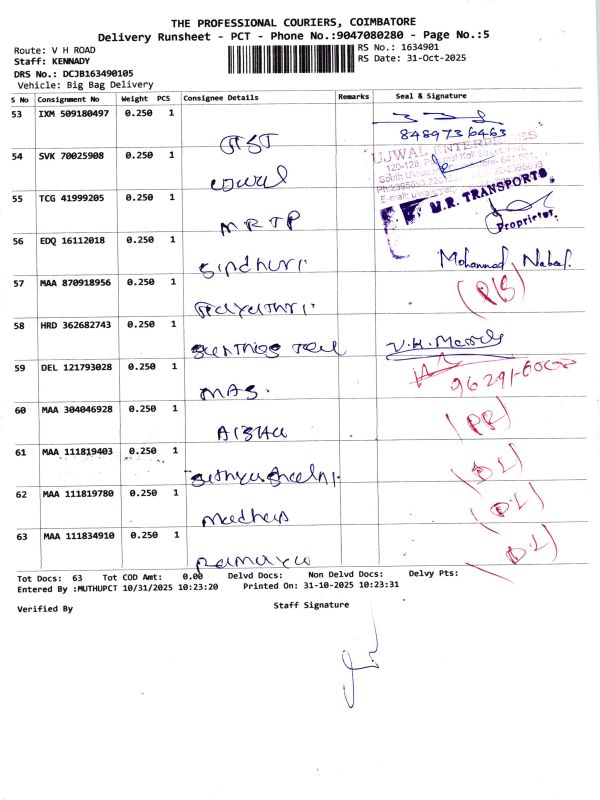 THE PROFESSIONAL COURIERS, COIMBATORE
Delivery Runsheet - PCT - Phone No.:9047080280 - Page No.:5
Route: V H ROAD
RS No.: 1634901
Staff: KENNADY
RS Date: 31-Oct-2025
DRS No.: DCJB163490105
Vehicle: Big Bag Delivery
S No Consignment No Weight PCS Consignee Details Remarks Seal & Signature
53 IXM 509180497 0.250 1
8489736463
54 SVK 70025908 0.250 1
UJWAL ENTERPRISES
ujwal
55 TCG 41999205 0.250 1
M.R. TRANSPORTS.
MRTP
Proprietor.
56 EDQ 16112018 0.250 1
Sindhuri Mohammad
57 MAA 870918956 0.250 1
58 HRD 362682743 0.250 1
V.K.
59 DEL 121793028 0.250 1
MAS.
60 MAA 304046928 0.250 1
61 MAA 111819403 0.250 1
(DL)
62 MAA 111819780 0.250 1
(DL)
63 MAA 111834910 0.250 1
Ramaya (DL)
Tot Docs: 63 Tot COD Amt: 0.00 Delvd Docs: Non Delvd Docs: Delvy Pts:
Entered By :MUTHUPCT 10/31/2025 10:23:20 Printed On: 31-10-2025 10:23:31
Verified By Staff Signature